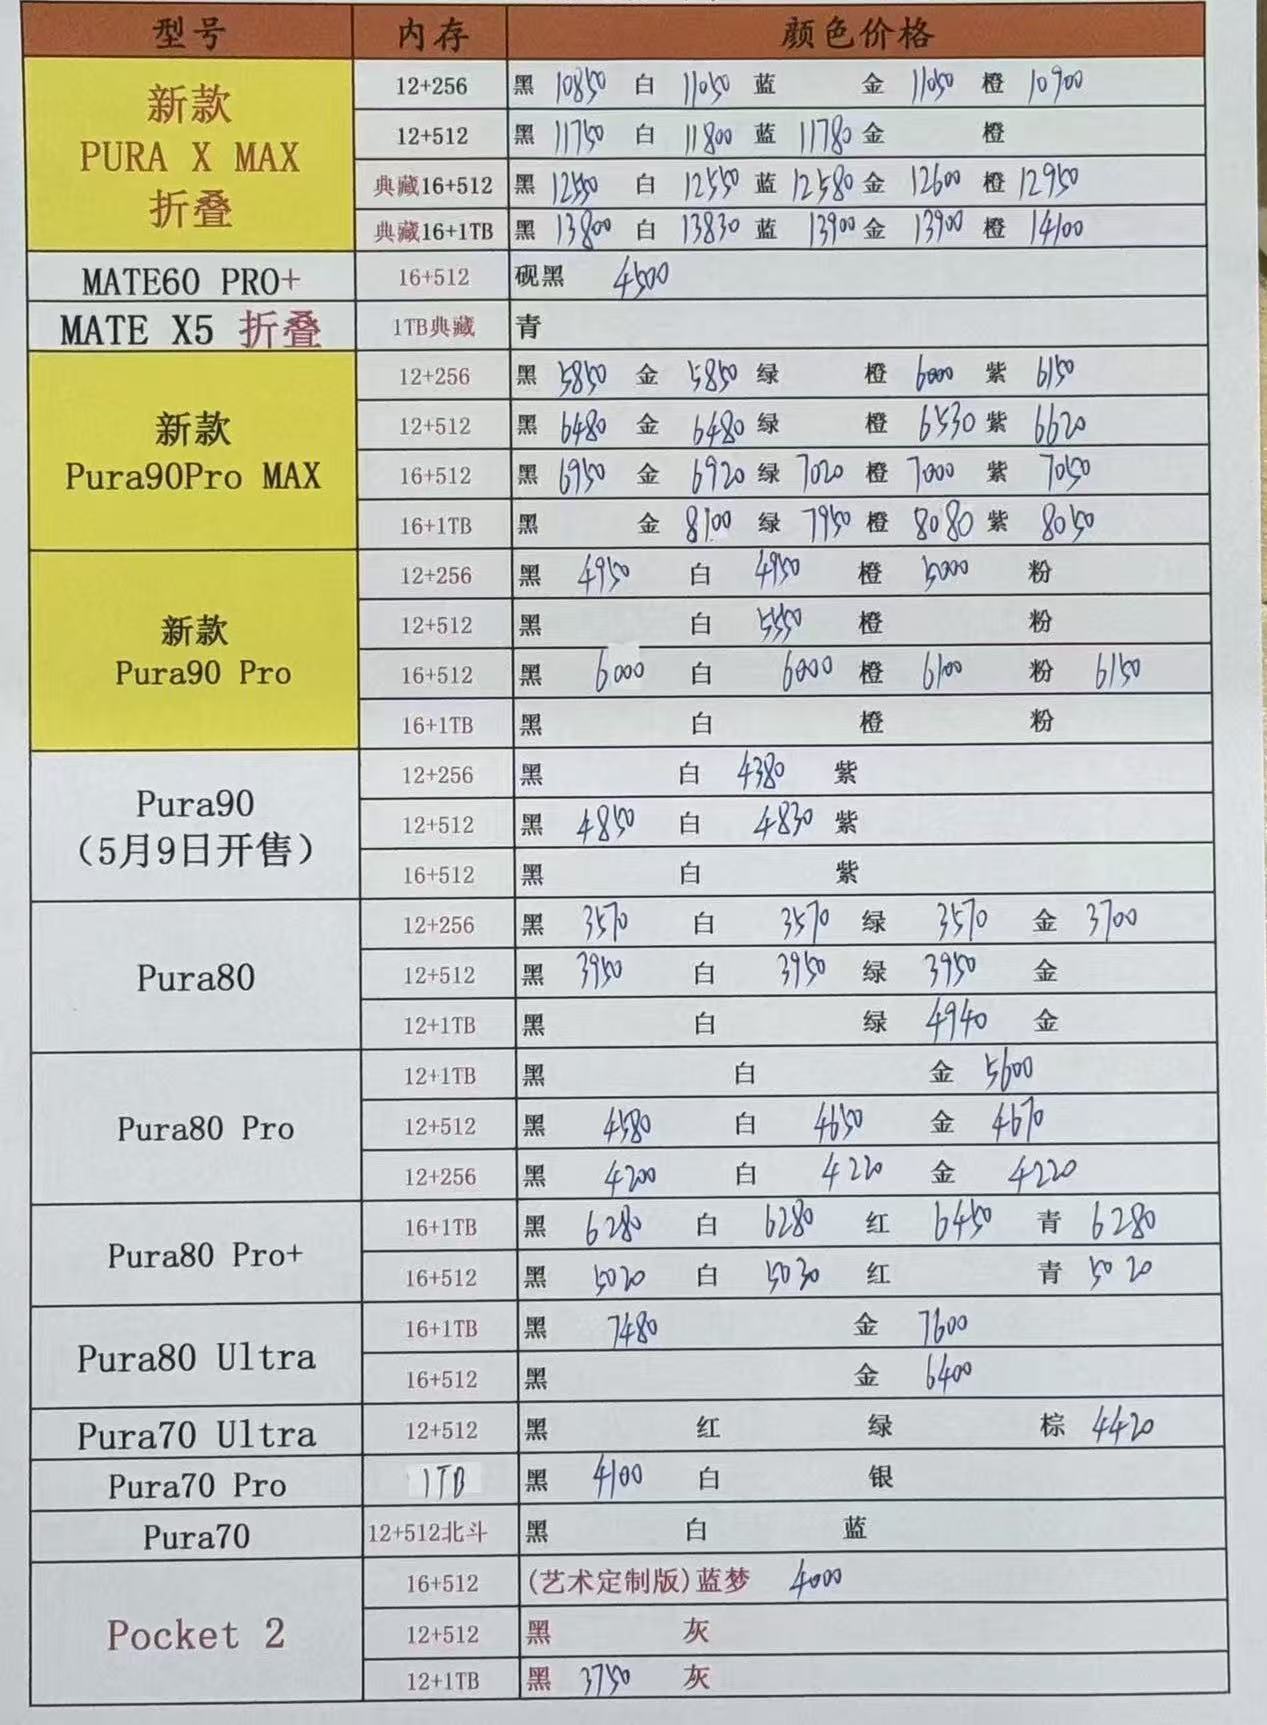 型号 内存 颜色价格
新款 PURA X MAX 折叠
12+256 黑 10850 白 11050 蓝 金 11050 橙 10900
12+512 黑 11750 白 11800 蓝 11780 金 橙
典藏16+512 黑 12550 白 12550 蓝 12580 金 12600 橙 12950
典藏16+1TB 黑 13800 白 13830 蓝 13900 金 13900 橙 14100
MATE60 PRO+ 16+512 砚黑 4500
MATE X5 折叠 1TB典藏 青
新款 Pura90Pro MAX
12+256 黑 5850 金 5850 绿 橙 6000 紫 6150
12+512 黑 6480 金 6480 绿 橙 6530 紫 6620
16+512 黑 6950 金 6920 绿 7020 橙 7000 紫 7050
16+1TB 黑 金 8100 绿 7950 橙 8080 紫 8050
新款 Pura90 Pro
12+256 黑 4950 白 4950 橙 5000 粉
12+512 黑 白 5550 橙 粉
16+512 黑 6000 白 6000 橙 6100 粉 6150
16+1TB 黑 白 橙 粉
Pura90 （5月9日开售）
12+256 黑 白 4380 紫
12+512 黑 4850 白 4830 紫
16+512 黑 白 紫
Pura80
12+256 黑 3570 白 3570 绿 3570 金 3700
12+512 黑 3950 白 3950 绿 3950 金
12+1TB 黑 白 绿 4940 金
Pura80 Pro
12+1TB 黑 白 金 5600
12+512 黑 4580 白 4650 金 4670
12+256 黑 4200 白 4220 金 4220
Pura80 Pro+
16+1TB 黑 6280 白 6280 红 6450 青 6280
16+512 黑 5020 白 5030 红 青 5020
Pura80 Ultra
16+1TB 黑 7480 金 7600
16+512 黑 金 6400
Pura70 Ultra 12+512 黑 红 绿 棕 4420
Pura70 Pro 1TB 黑 4100 白 银
Pura70 12+512北斗 黑 白 蓝
Pocket 2
16+512 (艺术定制版)蓝梦 4000
12+512 黑 灰
12+1TB 黑 3750 灰